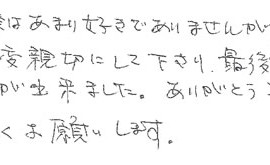 はあまり好きでありませんが
変親切にして下さり、最後
が出来ました。ありがとう
くお願いします。